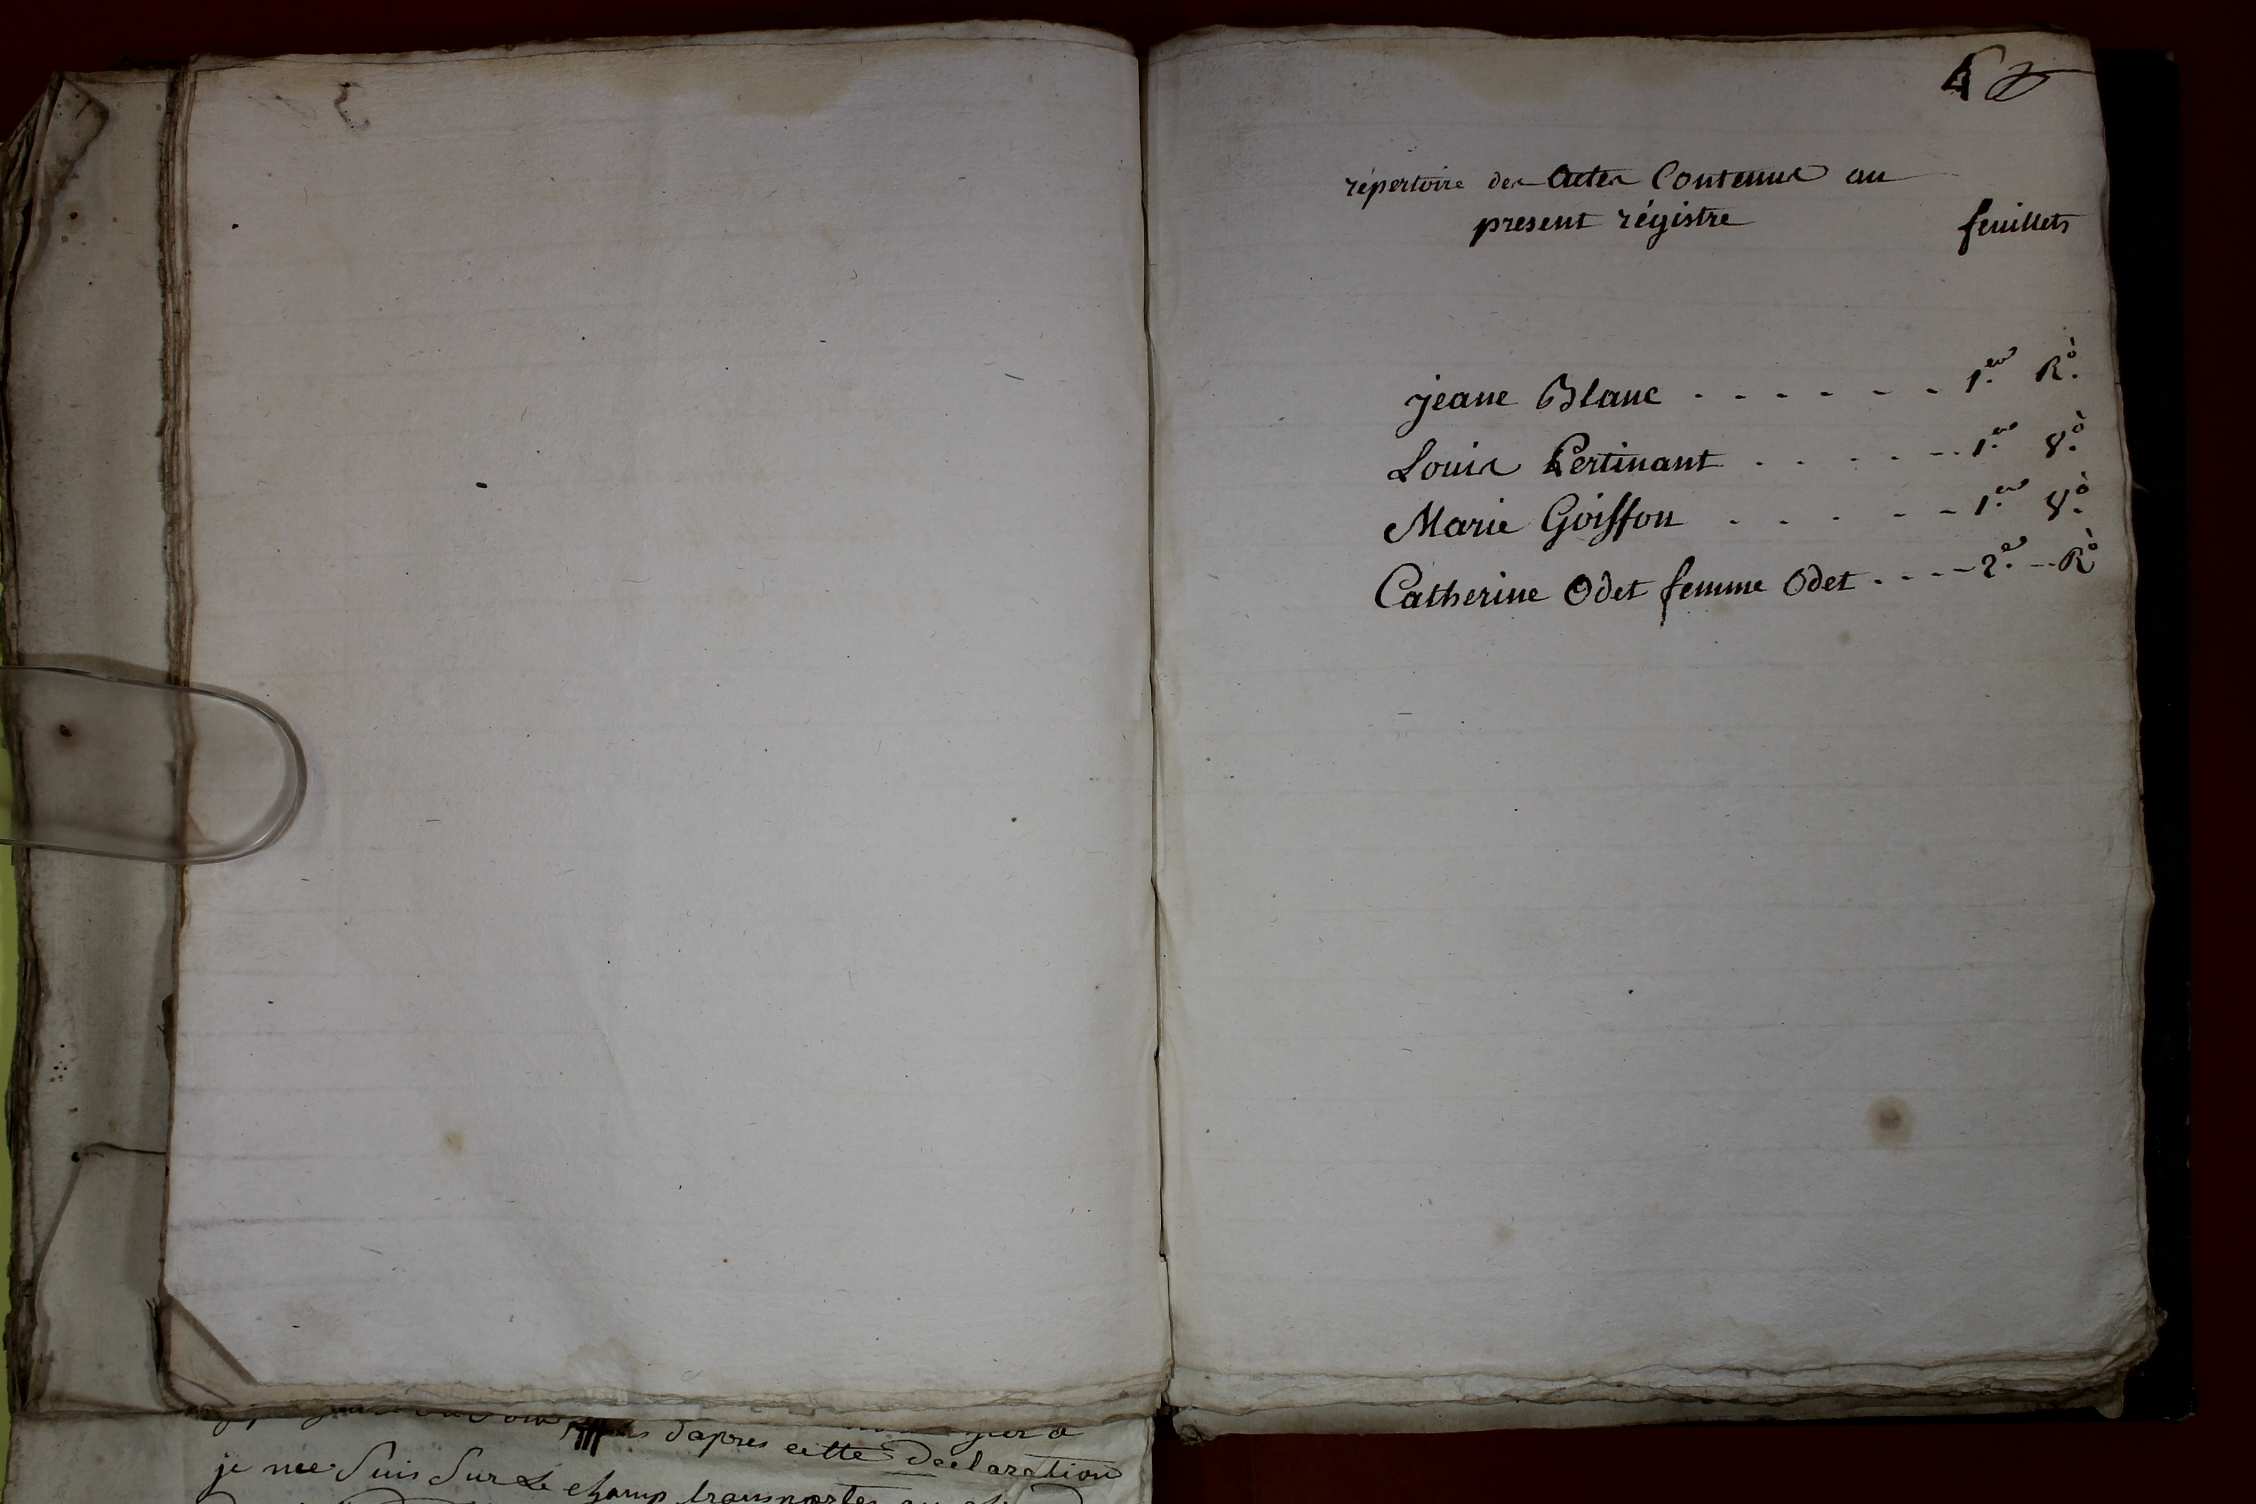 4
répertoire des Actes Contenus au
present régistre feuillets
jeane Blanc . . . . . . 1.er R.o
Louis Pertinant . . . . . 1.er V.o
Marie Goiffon . . . . . 1.er V.o
Catherine Odet femme Odet . . . . 2.e R.o
d'apres cette declaration
je me suis sur le champ